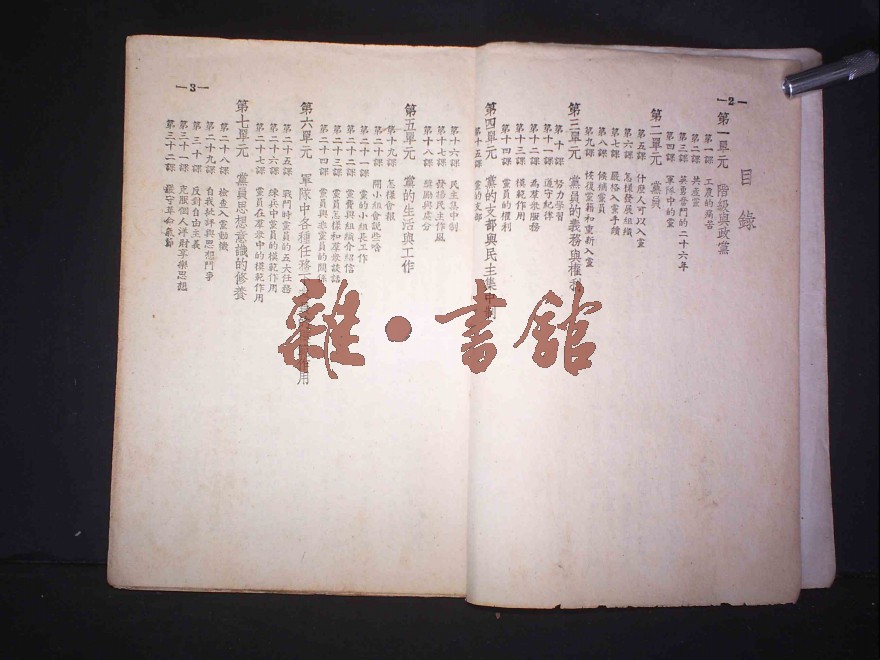 —2—
目錄
第一單元 階級與政黨
第一課 工農的痛苦
第二課 共產黨
第三課 英勇奮鬥的二十六年
第四課 軍隊中的黨
第二單元 黨員
第五課 什麼人可以入黨
第六課 怎樣發展組織
第七課 嚴格入黨手續
第八課 候補黨員
第九課 恢復黨籍和重新入黨
第三單元 黨員的義務與權利
第十課 努力學習
第十一課 遵守紀律
第十二課 為羣衆服務
第十三課 模範作用
第十四課 黨員的權利
第四單元 黨的支部與民主集中制
第十五課 黨的支部
—3—
第十六課 民主集中制
第十七課 發揚民主作風
第十八課 獎勵與處分
第五單元 黨的生活與工作
第十九課 怎樣會報
第二十課 開小組會說些啥
第二十一課 黨的小組長工作
第二十二課 黨費與組織介紹信
第二十三課 黨員怎樣和羣衆談話
第二十四課 黨員與非黨員的關係
第六單元 軍隊中各種任務下 用
第二十五課 戰鬥時黨員的五大任務
第二十六課 練兵中黨員的模範作用
第二十七課 黨員在羣衆中的模範作用
第七單元 黨員思想意識的修養
第二十八課 檢查入黨動機
第二十九課 自我批評與思想鬥爭
第三十課 反對自由主義
第三十一課 克服個人洋財享樂思想
第三十二課 嚴守革命氣節
雜·書館